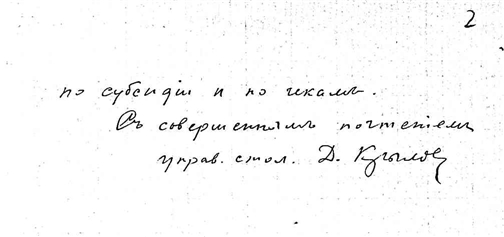 2
по субсидіи и по чекамъ.
Съ совершеннымъ почтеніемъ
управ. стол. Д. Крылов